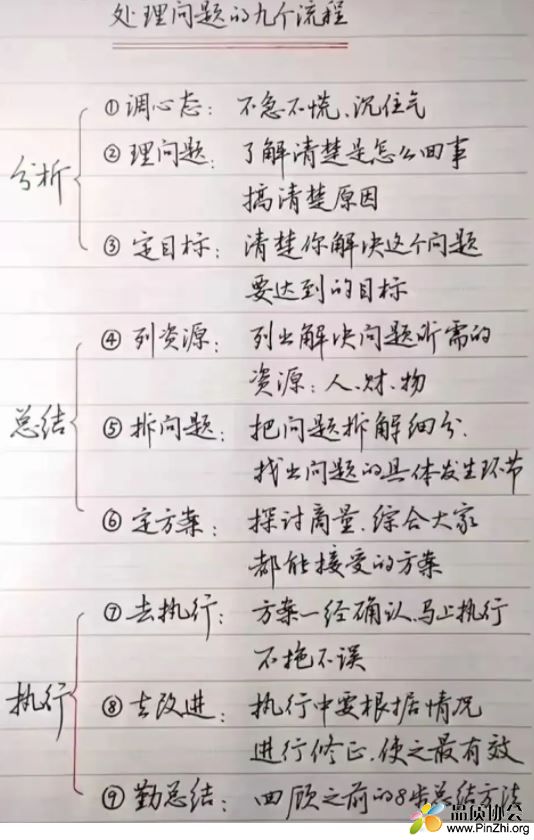 处理问题的九个流程
分析
①调心态：不急不慌、沉住气
②理问题：了解清楚是怎么回事
搞清楚原因
③定目标：清楚你解决这个问题
要达到的目标
总结
④列资源：列出解决问题所需的
资源：人、财、物
⑤拆问题：把问题拆解细分，
找出问题的具体发生环节
⑥定方案：探讨商量、综合大家
都能接受的方案
执行
⑦去执行：方案一经确认、马上执行
不拖不误
⑧去改进：执行中要根据情况
进行修正、使之最有效
⑨勤总结：回顾之前的8步总结方法
品质协会
www.PinZhi.org